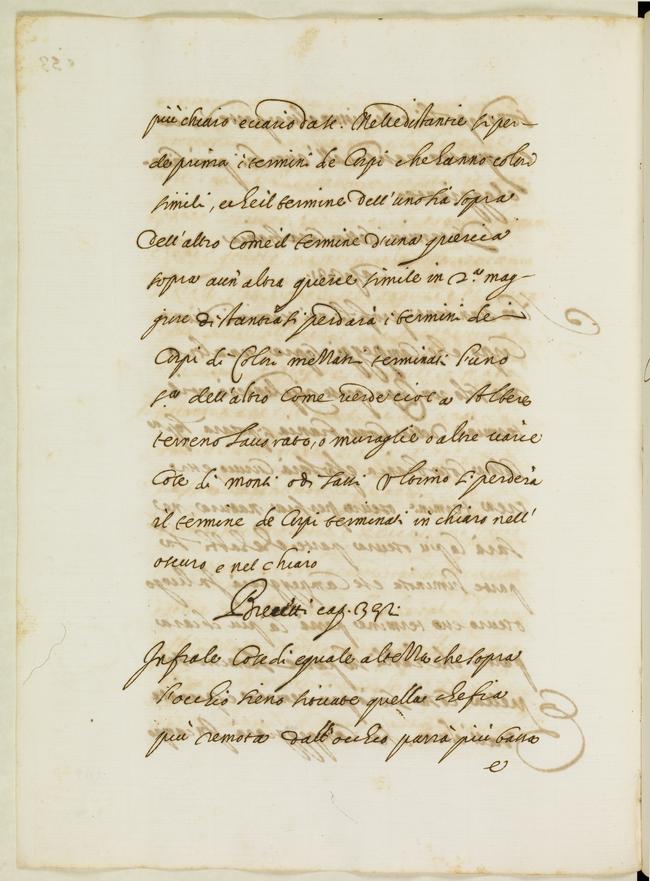 più chiaro e vario da se. Nelle distantie si per-
de prima i termini de Corpi che hanno colori
simili, e che il termine dell'uno sia sopra
dell'altro come il termine d'una quercia
sopra a un' altra querce simile in 2.ª mag-
giore distantia si perdarà i termini de i
Corpi di Colori mezzani terminati l'uno
s.ª dell'altro come verde cioè Albere
terreno lavorato, o muraglie o altre varie
Cose di monti o di sassi Ultimo si perderà
il termine de Corpi terminati in chiaro nell'
oscuro e nel chiaro
Precetti cap. 392.
Infra le Cose di equale altezza che sopra
l'occhio sieno situate quella che fia
più remota dall'occhio parrà più bassa
e